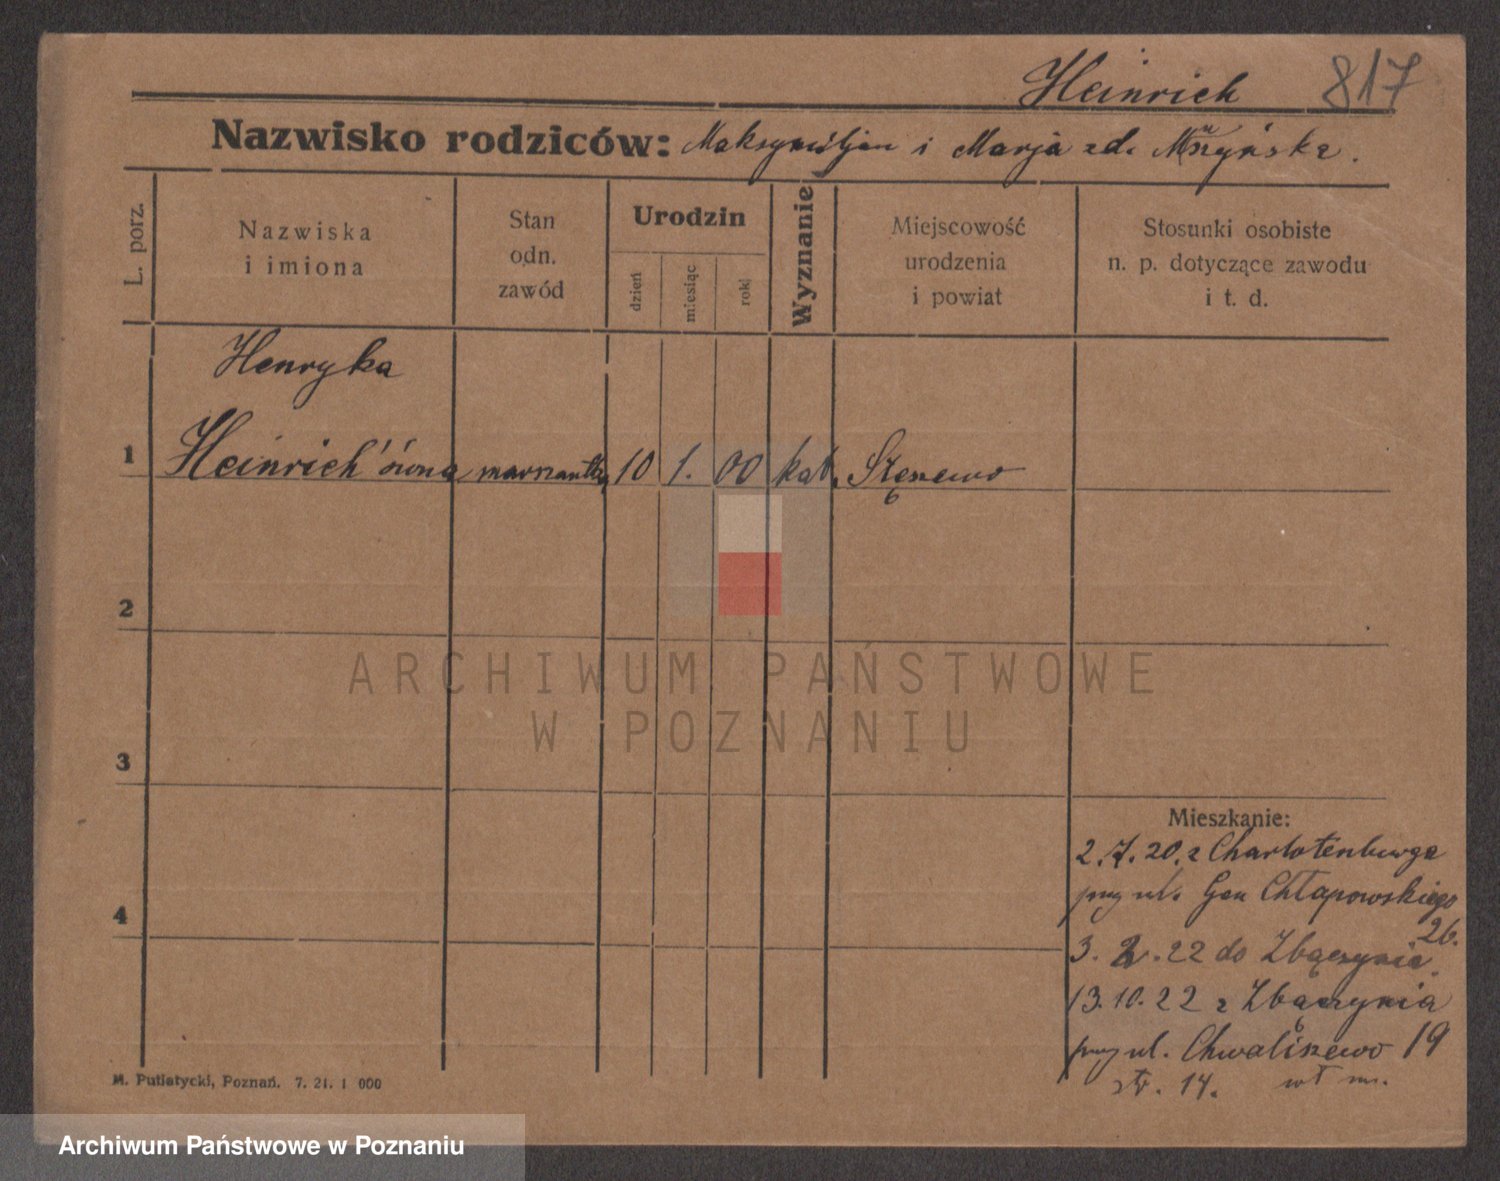 Heinrich 817
Nazwisko rodziców: Maksymiljan i Marja zd.
L. porz.
Nazwiska
i imiona
Stan
odn.
zawód
Urodzin
dzień
miesiąc
rok
Wyznanie
Miejscowość
urodzenia
i powiat
Stosunki osobiste
n. p. dotyczące zawodu
i t. d.
Henryka
1 Heinrich'ówna 10 1. 00 kat. Stęszewo
2
3
4
Mieszkanie:
2.7.20. z Charlotenburga
przy ul. Gen Chłapowskiego
26.
3. 2. 22 do Zbąszynia.
13.10.22 z Zbąszynia
przy ul. Chwaliszewo 19
str. 14.
M. Putiatycki, Poznań. 7. 21. 1 000
ARCHIWUM PAŃSTWOWE
W POZNANIU
Archiwum Państwowe w Poznaniu